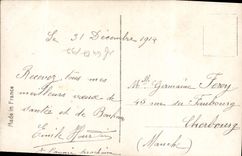 Le 31 Décembre 1914
Recevez tous mes
meilleurs vœux de
santée et de Bonheur
Emile
Made in France
Mlle Germaine Feroy
40 rue du Faubourg
Cherbourg
(Manche)